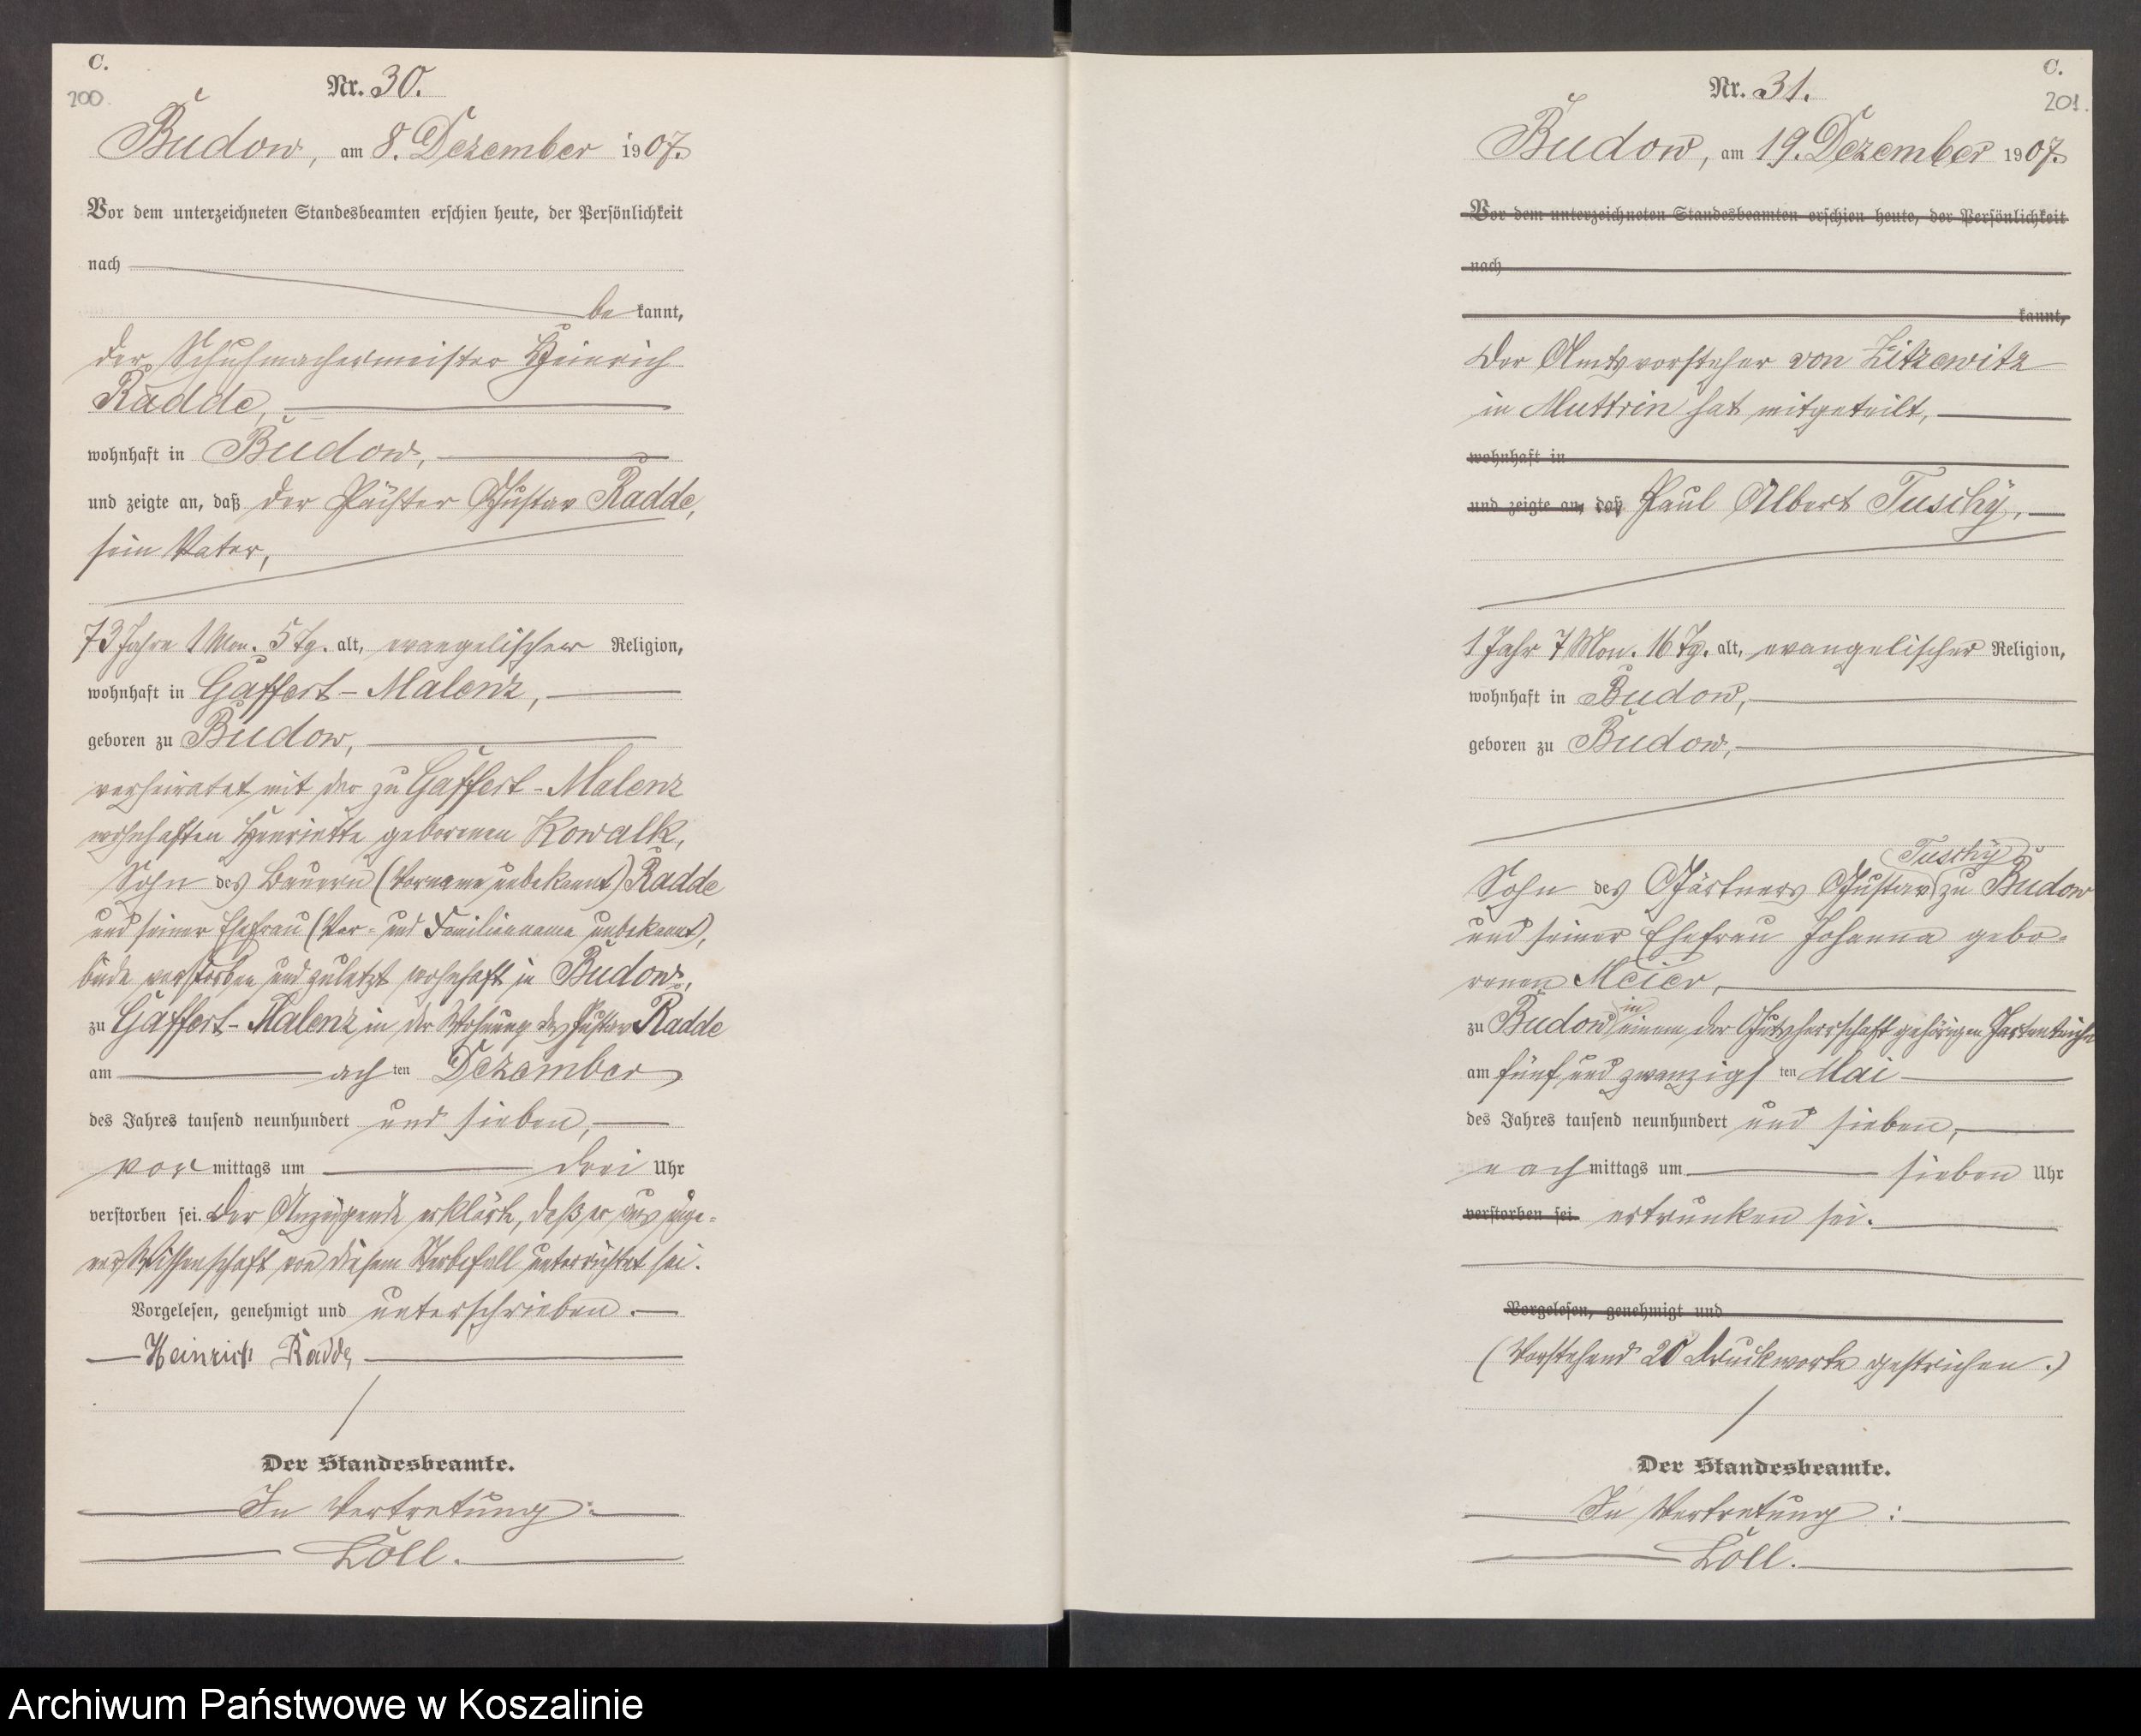 C.
200.
Nr. 30.
Budow, am 8. Dezember 1907.
Vor dem unterzeichneten Standesbeamten erschien heute, der Persönlichkeit
nach
be kannt,
der Schuhmachermeister Heinrich
Radde,
wohnhaft in Budow,
und zeigte an, daß der Pächter Gustav Radde,
sein Vater,
73 Jahre 1 Mon. 5 Tg. alt, evangelischer Religion,
wohnhaft in Gaffert-Malenz,
geboren zu Budow,
verheiratet mit der zu Gaffert-Malenz
wohnhaften Henriette geborenen Kowalk,
Sohn des Bauern (Vorname unbekannt) Radde
und seiner Ehefrau (Vor- und Familienname unbekannt),
beide verstorben und zuletzt wohnhaft in Budow,
zu Gaffert-Malenz in der Wohnung des Gustav Radde
am achten Dezember
des Jahres tausend neunhundert und sieben,
vormittags um drei Uhr
verstorben sei. Der Anzeigende erklärte, daß er aus eige-
ner Wissenschaft von diesem Sterbefall unterrichtet sei.
Vorgelesen, genehmigt und unterschrieben.
Heinrich Radde
Der Standesbeamte.
In Vertretung:
Löll.
C.
201.
Nr. 31.
Budow, am 19. Dezember 1907.
Vor dem unterzeichneten Standesbeamten erschien heute, der Persönlichkeit
nach
kannt,
Der Amtsvorsteher von Zitzewitz
in Muttrin hat mitgeteilt,
wohnhaft in
und zeigte an, daß Paul Albert Tuschy,
1 Jahr 7 Mon. 16 Tg. alt, evangelischer Religion,
wohnhaft in Budow,
geboren zu Budow,
Tuschy
Sohn des Gärtners Gustav zu Budow
und seiner Ehefrau Johanna gebo-
renen Meier,
in
zu Budow einem der Gutsherrschaft gehörigen Gartenteiche
am fünf und zwanzigsten Mai
des Jahres tausend neunhundert und sieben,
nachmittags um sieben Uhr
verstorben sei ertrunken sei.
Vorgelesen, genehmigt und
(Vorstehend 20 Druckworte gestrichen.)
Der Standesbeamte.
In Vertretung:
Löll.
Archiwum Państwowe w Koszalinie